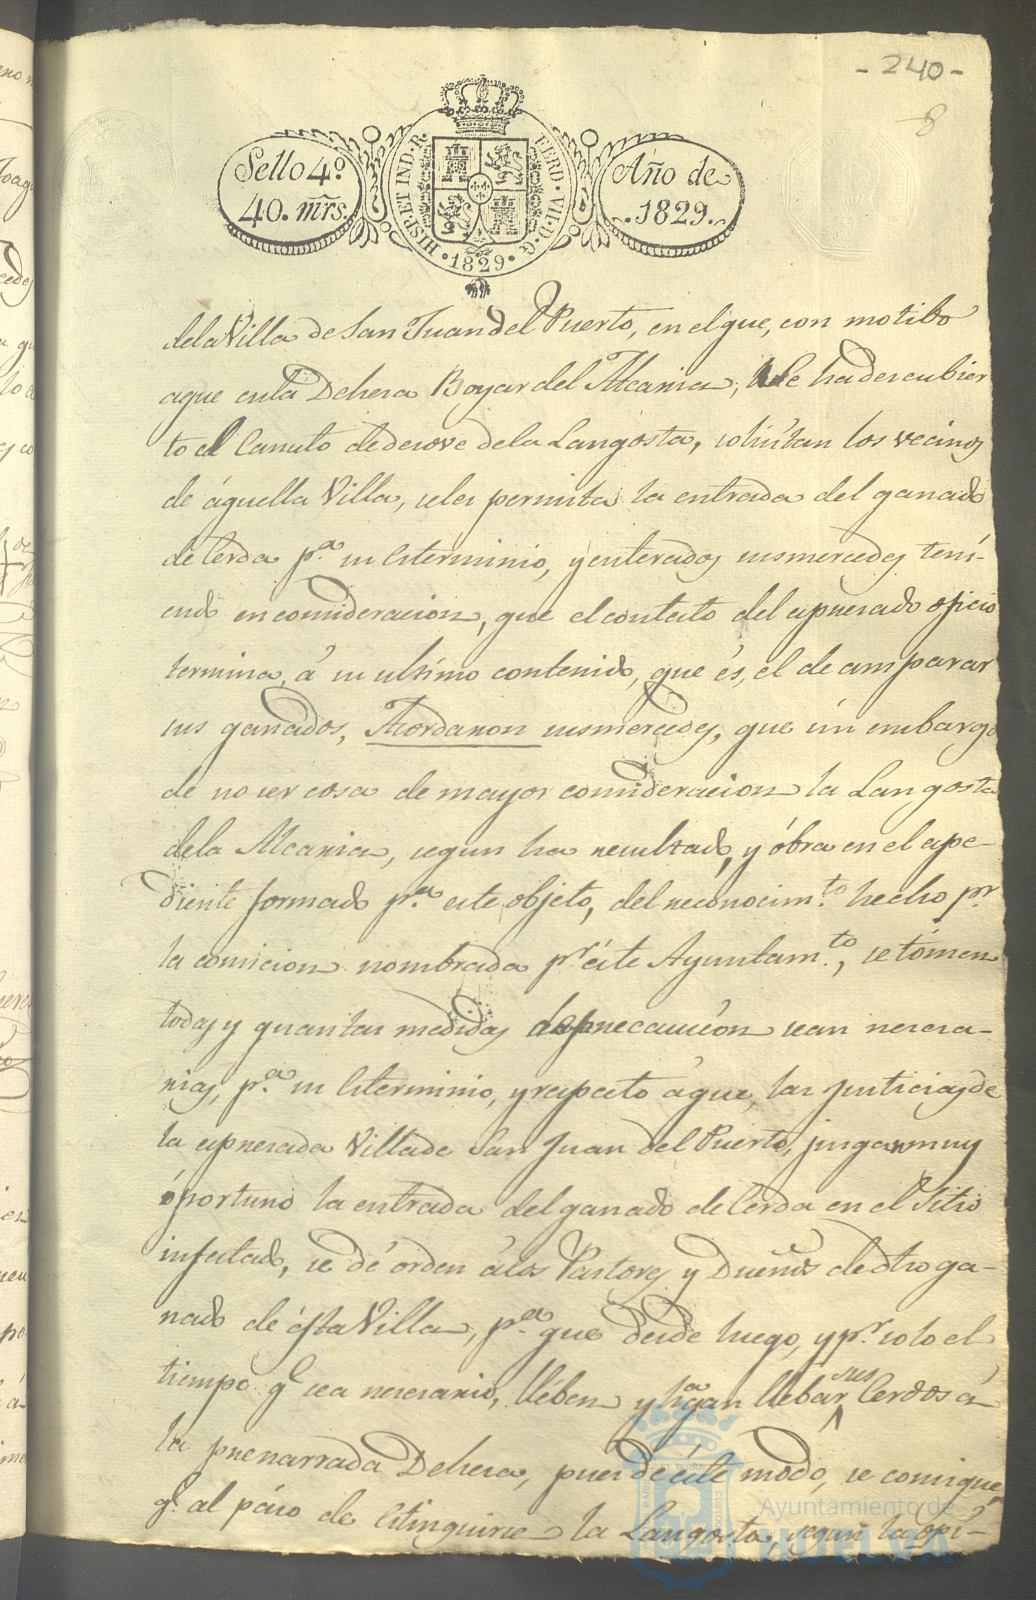 - 240 -
8
Sello 4º.
40. mrs.
HISP. ET IND. R.
FERD. VII. D. G.
1829
Año de
1829.
dela Villa de San Juan del Puerto, en el que, con motibo
aque enla Dehesa Boyar del Alcaria, se ha descubier
to el Canuto de desove dela Langosta, solisitan los vecinos
de áquella Villa, seles permita la entrada del ganado
de Cerda pª. su esterminio, y enterados susmercedes teni-
endo en consideracion, que el contesto del espresado oficio
termina, á su ultimo contenido, que és, el de amparar
sus ganados, Acordaron susmercedes, que sin embargo
de no ser cosa de mayor consideracion la Langosta
dela Alcaria, segun ha resultado, y óbra en el espe-
diente formado pr.ª este objeto, del reconocimto. hecho pr.
la comicion nombrada pr. éste Ayuntamto., se tómen
todas y quantas medidas de precaucion sean nesesa-
rias, pr.ª su esterminio, y respecto á que, las justicias de
la espresada Villa de San Juan del Puerto, jusgan muy
óportuno la entrada del ganado de Cerda en el Sitio
infestado, se dé órden álos Pastores y Dueños de dho ga-
nado de ésta Villa, pr.ª que desde luego, y pr. solo el
tiempo qe. sea nesesario, llében y hagan llebar sus Cerdos á
la prenarrada Dehesa, pues de éste modo, se consigue,
qe. al páso de estinguirse la Langosta, segun la opi-
Ayuntamiento de
HUELVA